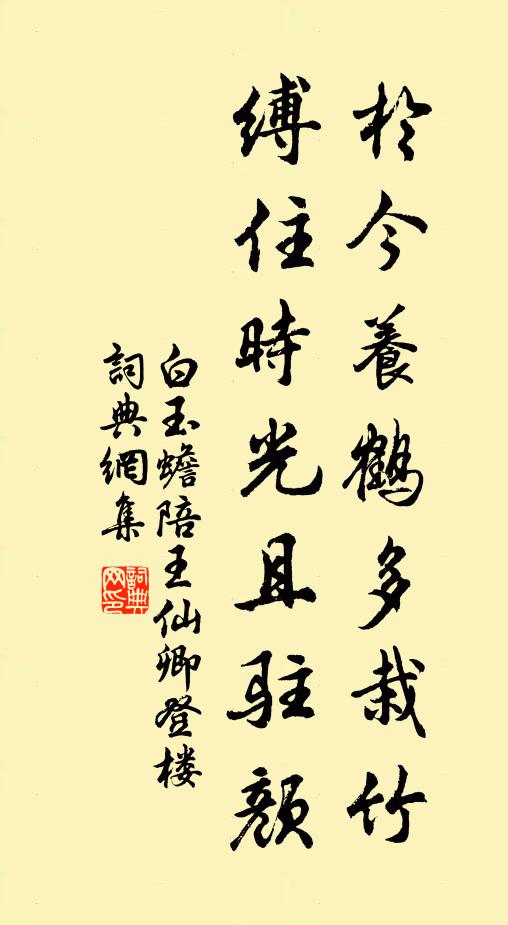 於今養鶴多栽竹
縛住時光且駐顏
白玉蟾陪王仙卿登楼
詞典網集
詞典
网印